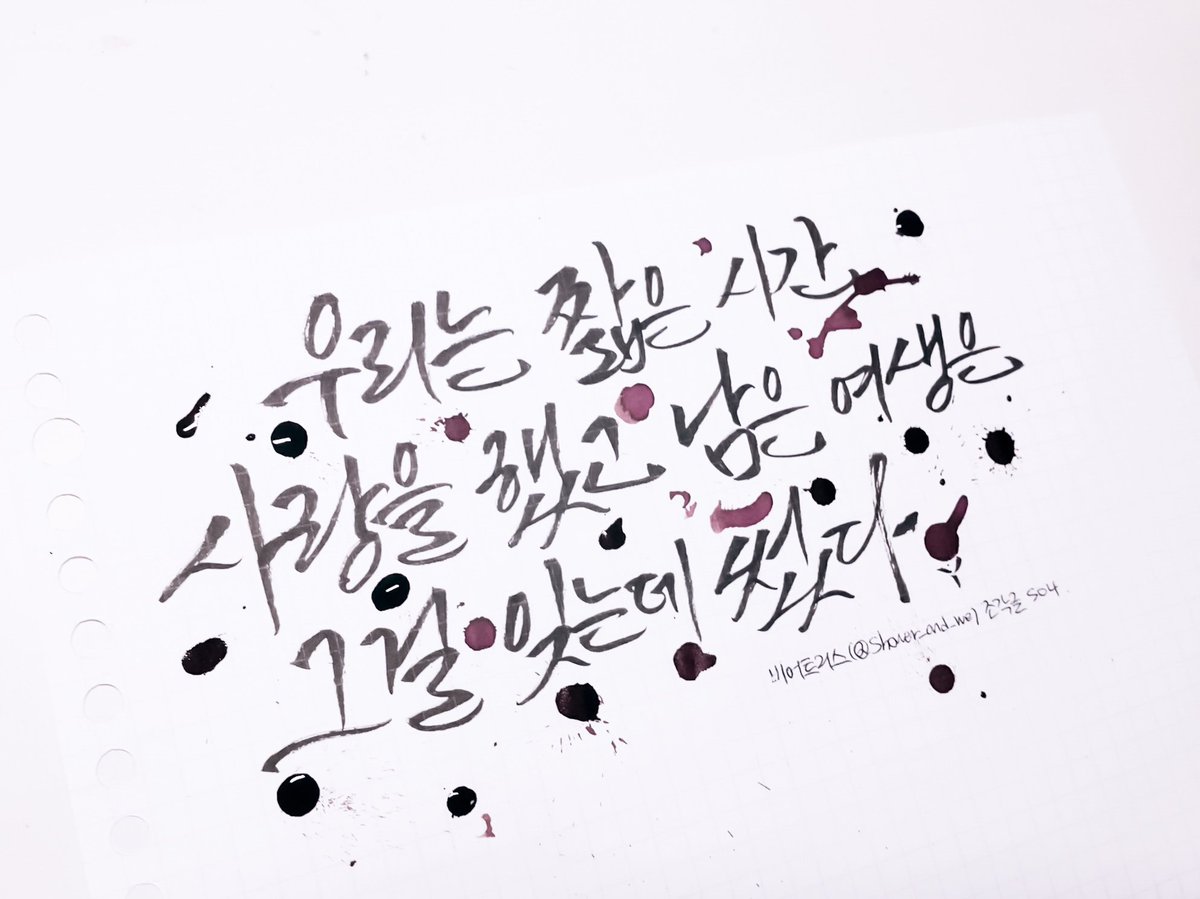 우리는 짧은 시간
사랑을 했고 남은 여생은
그걸 잊는데 썼다.
비어트리스(@shower_and_me) 조각글 504